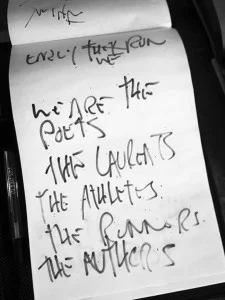 THEY RUN
WE
WE ARE THE
POETS
THE LAUREATS
THE ATHLETES.
THE RUNNERS.
THE AUTHORS